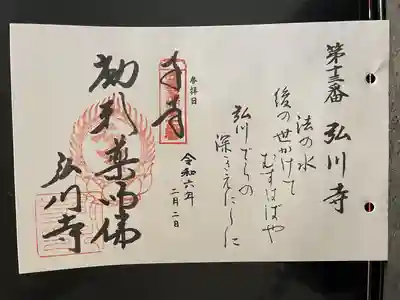 第十三番 弘川寺
法の水
後の世かけて
むすばばや
弘川でらの
深きえにしに
参拝日
令和六年
二月二日
奉拝
勅彩 薬師佛
弘川寺